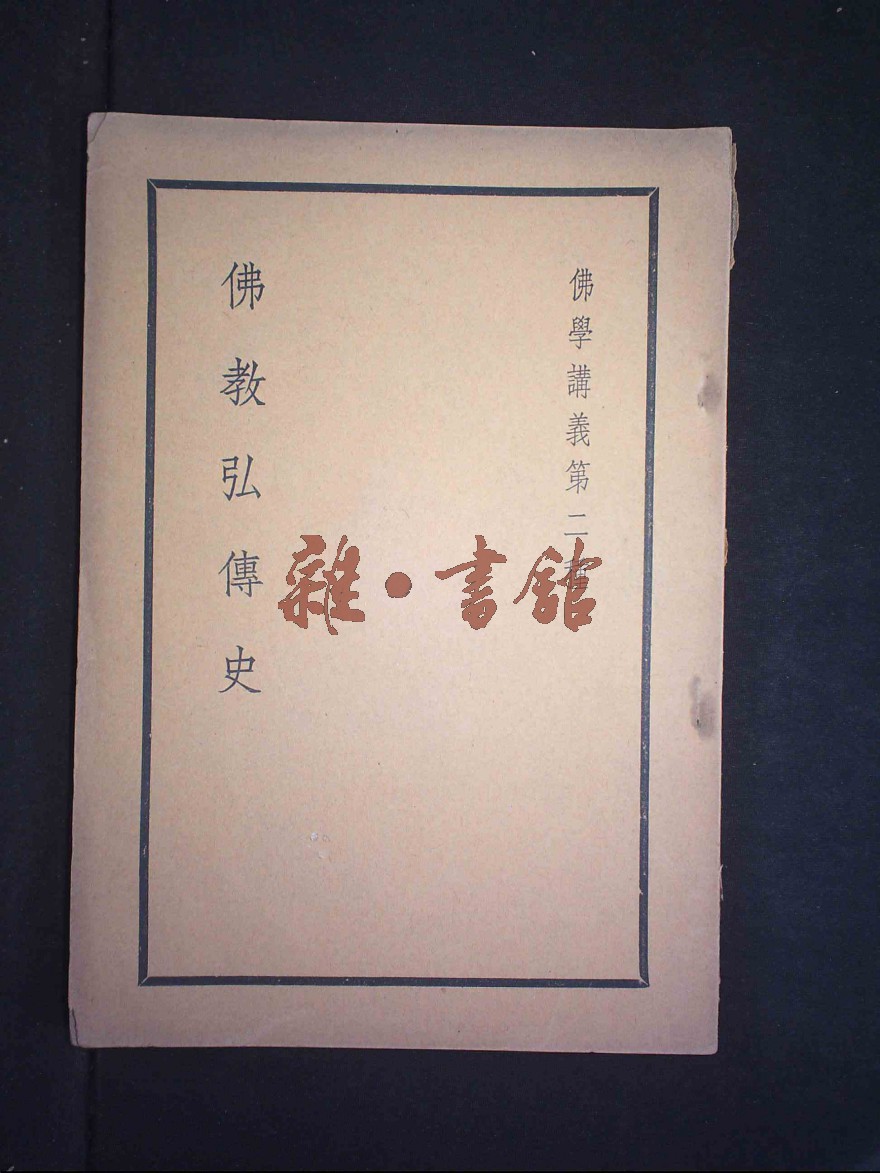 佛學講義第二種
佛教弘傳史
雜·書館